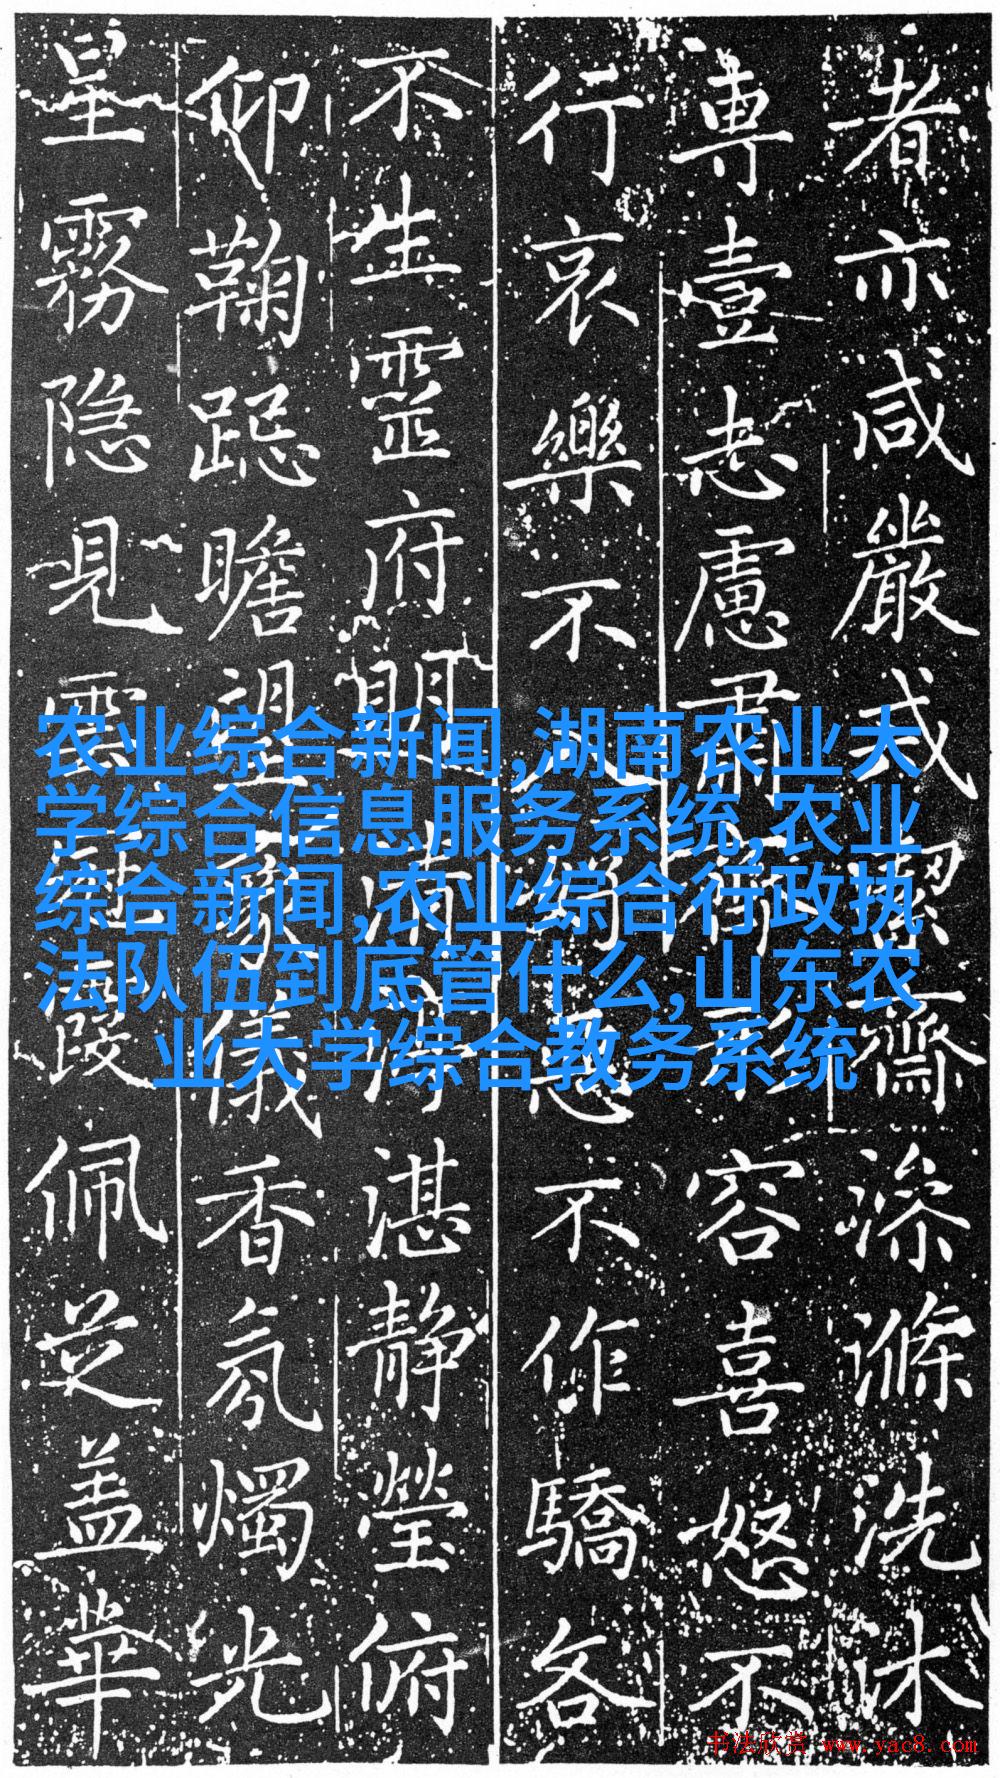 者亦咸嚴戒潔齋滌洗沐
專壹志慮肅容喜怒不
行哀樂不不作驕各
不生靈府湛静瑩俯
仰鞠跽瞻望儀香氛燭光
星霧隐見雲霞佩芝盖華
农业综合新闻,湖南农业大
学综合信息服务系统,农业
综合新闻,农业综合行政执
法队伍到底管什么,山东农
业大学综合教务系统
书法欣赏 www.yac8.com